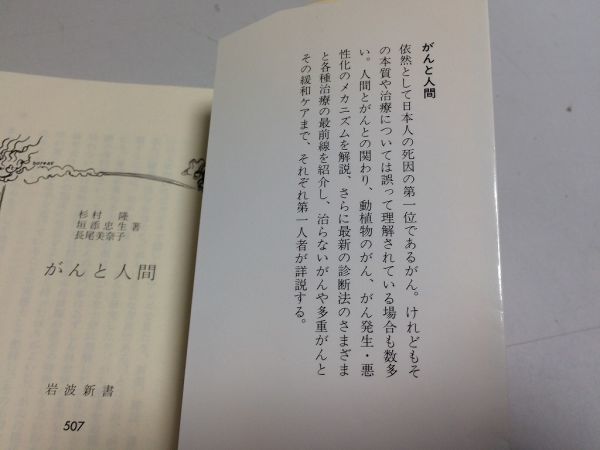 がんと人間
依然として日本人の死因の第一位であるがん。けれどもそ
の本質や治療については誤って理解されている場合も数多
い。人間とがんとの関わり、動植物のがん、がん発生・悪
性化のメカニズムを解説、さらに最新の診断法のさまざま
と各種治療の最前線を紹介し、治らないがんや多重がんと
その緩和ケアまで、それぞれ第一人者が詳説する。
boreas
杉村 隆
垣添忠生著
長尾美奈子
がんと人間
岩波新書
507